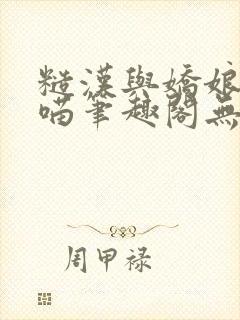 糙漢與嬌娘
喵筆趣閣無
周甲禄